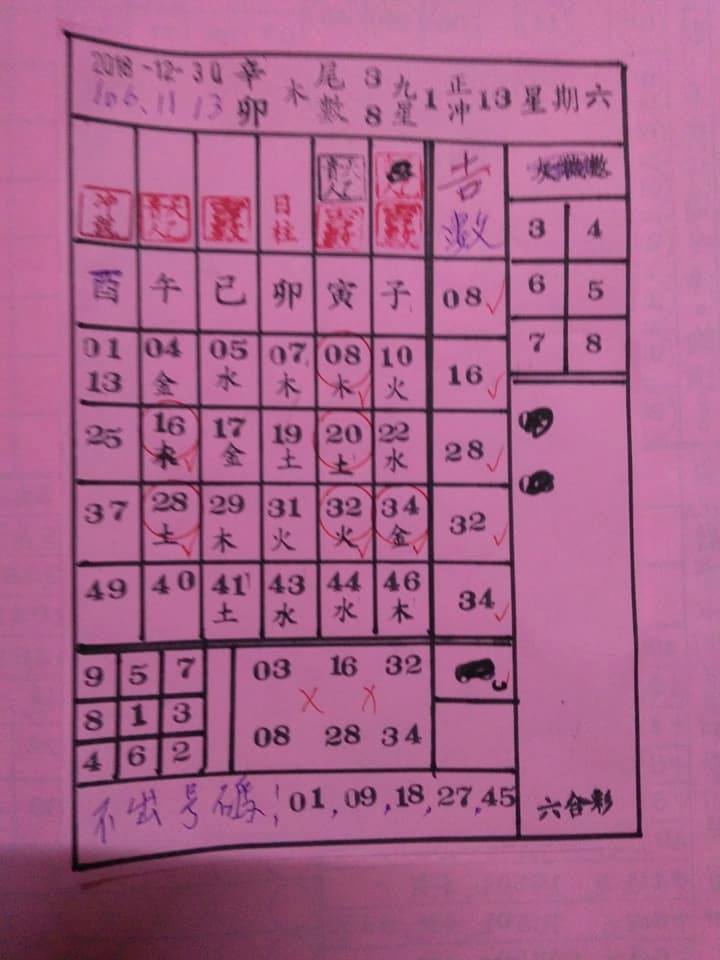 2018-12-30 辛卯 木 尾數 3 8 九星 1 正沖 13 星期六
106.11 13
沖 天乙貴人 日柱 天乙貴人 吉数
酉 午 已 卯 寅 子 08 3 4
01 13 04 金 05 水 07 木 08 木 10 火 16 6 5
25 16 木 17 金 19 土 20 土 22 水 28 7 8
37 28 土 29 木 31 火 32 火 34 金 32
49 40 41 土 43 水 44 水 46 木 34
9 5 7 03 16 32
8 1 3
4 6 2 08 28 34
不出号碼: 01, 09, 18, 27, 45
六合彩